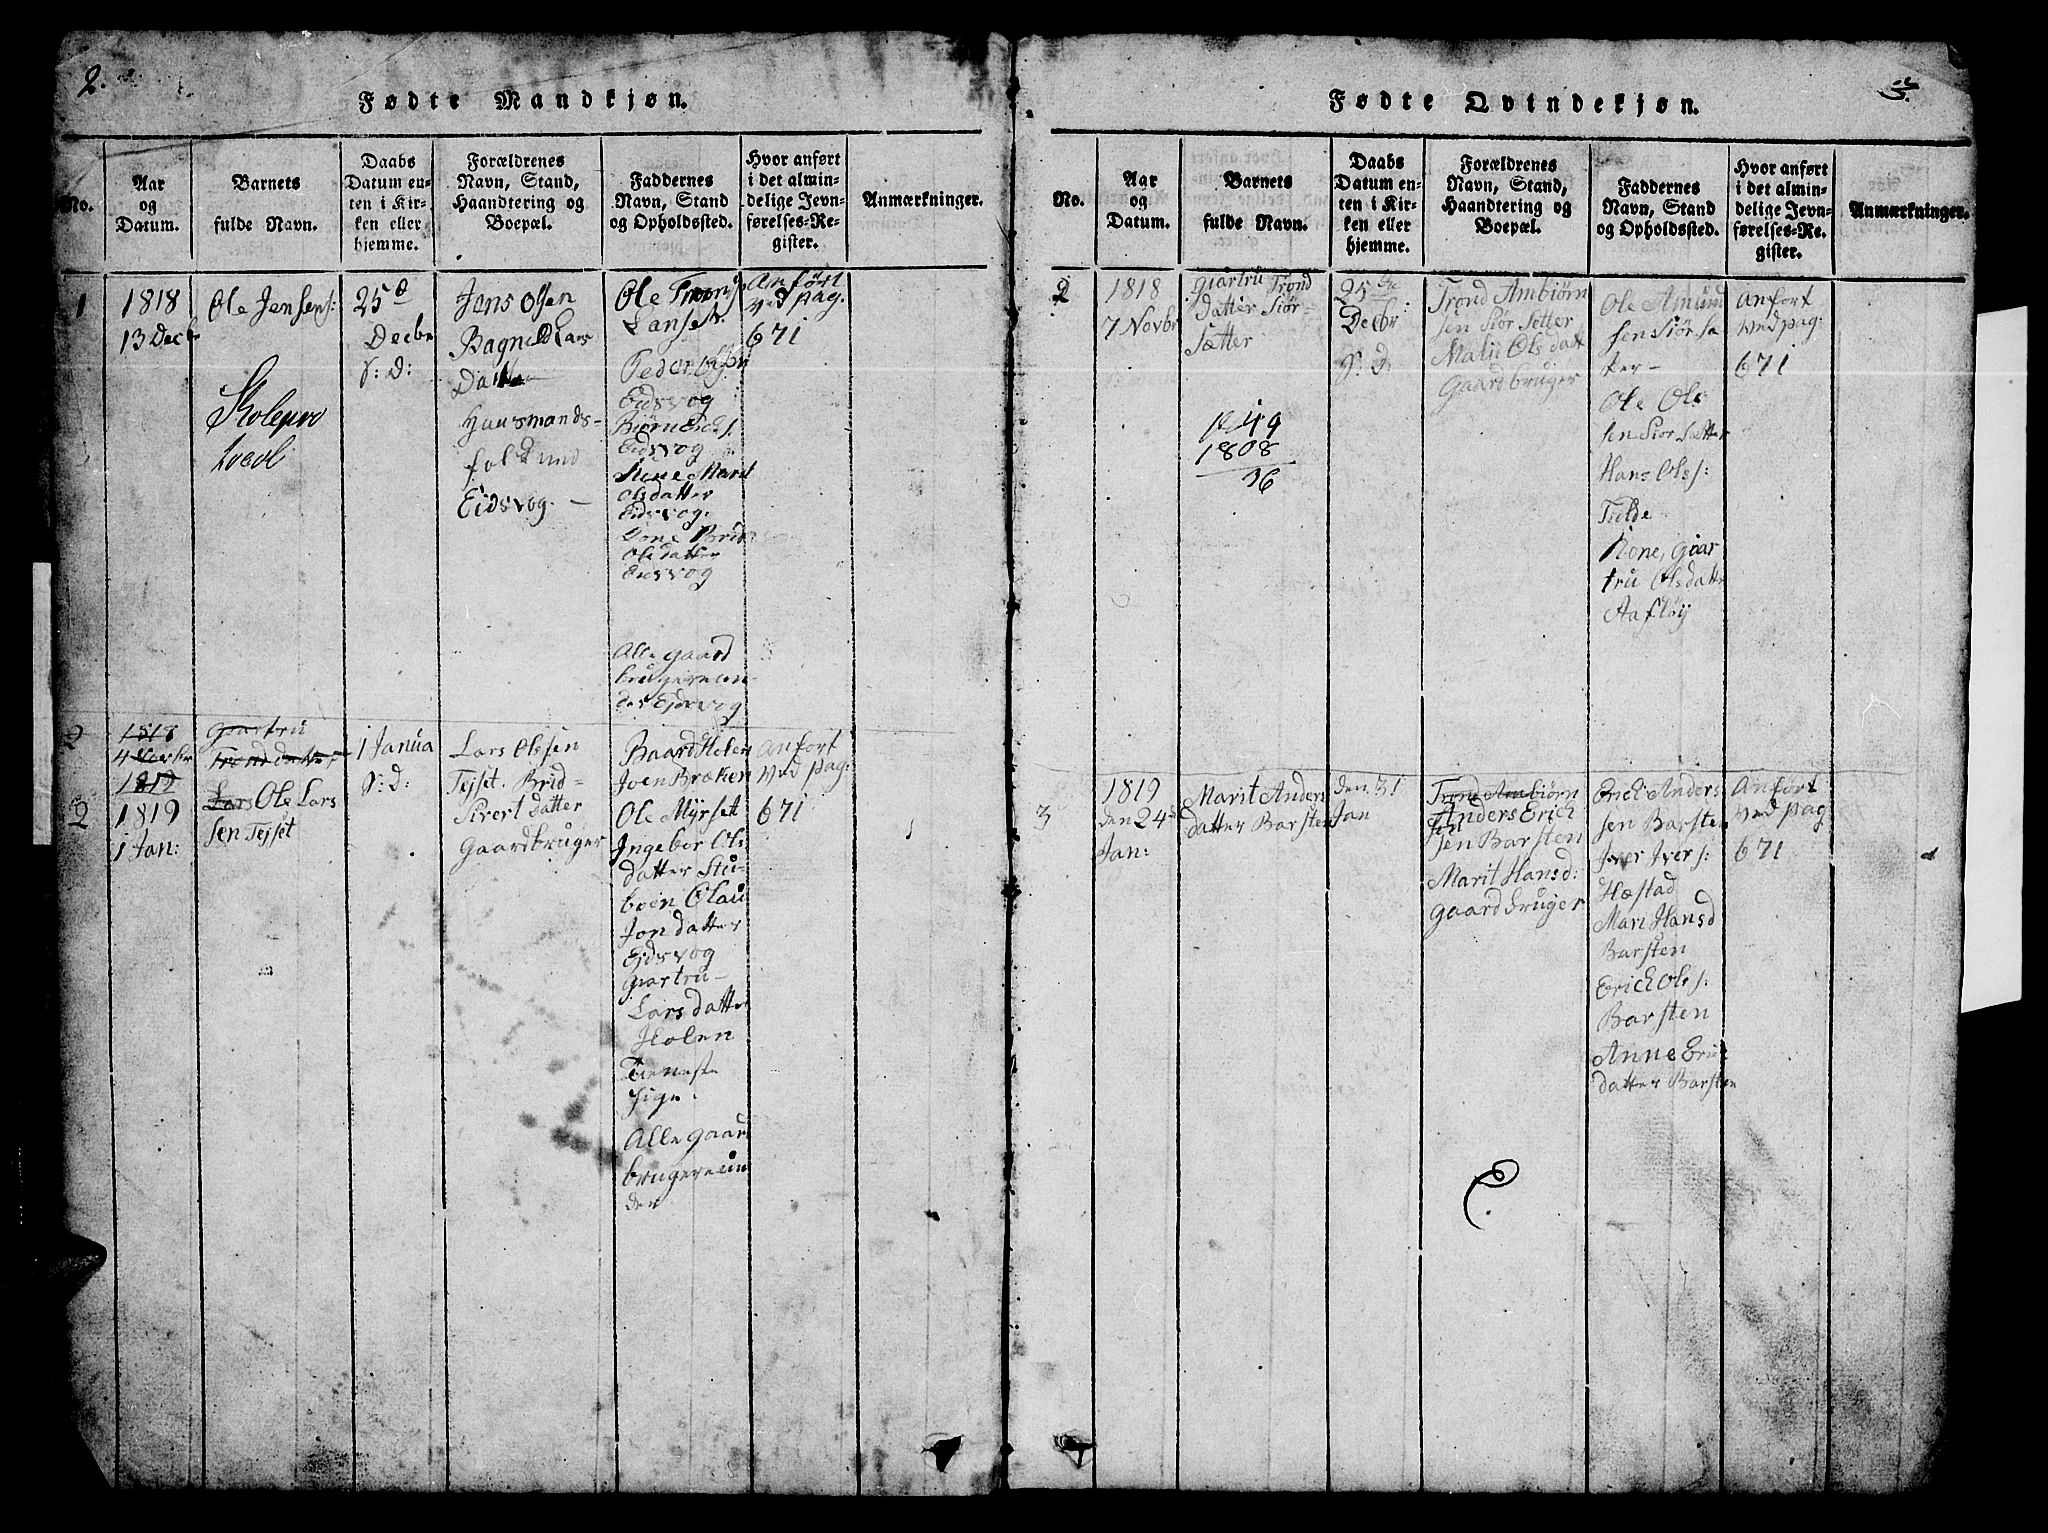 2.
Fødte Mandkjøn.
No.
Aar
og
Datum.
Barnets
fulde Navn.
Daabs
Datum en-
ten i Kir-
ken eller
hjemme.
Forældrenes
Navn, Stand,
Haandtering og
Boepæl.
Faddernes
Navn, Stand
og Opholdssted.
Hvor anført
i det almin-
delige Jevn-
førelses-Re-
gister.
Anmærkninger.
1
1818
13 Decbr
Ole Jensens:
25
Decbr
S: D:
Jens Olsen
Datter
Huusmands-
folk und
Eidsvog. -
Ole
Peder
Eidsvog
Biørn
Eidsvog
Marit
Olsdatter
Eidsvog.
Brid
Olsdatter
Eidsvog
Alle gaard
brugere un-
der Ejdsvog
Anført
ved pag.
671
2
1818
4 Novbr
1819
2
1819
1 Jan:
Giartru
Trond datter
Lars Ole Lars
sen Tejset
1 Janua
S: D:
Lars Olssen
Tejset. Brid-
Sivert datter
Gaardbruger
Baard Holen
Joen Bræken
Ole Myrset
Ingebor Ols
datter Stu-
boen Olau
Jon datter
Ejdsvog
giartru-
Lars datter
Holen
Tieneste
pige.
Alle gaard
brugere un
der
Anført
ved pag:
671
3.
Fødte Qvindekjøn.
No.
Aar
og
Datum.
Barnets
fulde Navn.
Daabs
Datum en-
ten i Kir-
ken eller
hjemme.
Forældrenes
Navn, Stand,
Haandtering og
Boepæl.
Faddernes
Navn, Stand
og Opholdssted.
Hvor anført
i det almin-
delige Jevn-
førelses-Re-
gister.
Anmærkninger.
2
1818
7 Novbr
giartru Trond
datter Siør-
sætter
1808
36
25
Decbr
S: D
Trond Ambiørn
sen Siør Setter
Mali Ols datt
Gaardbruger
Ole Amund
sen Siør sæ
ter-
Ole Ols
sen Siør Sætter
Hans Ols s:
Tielde
Kone, giar
tru Olsdatter
Aafløy
Anfort
ved pag:
671
3
1819
den 24
Jan:
Marit Anders
datter Barsten
den 31
Jan
Trond Ambiørn
sen Anders Erich
sen Barsten
Marit Hansd:
gaardbruger
Erich Anders
sen Barsten
Iver Ivers:
Hæstad
Mari Hansd
Barsten
Erich Ols s:
Barsten
Anne Erich
datter Barsten
Anført
ved pag
671